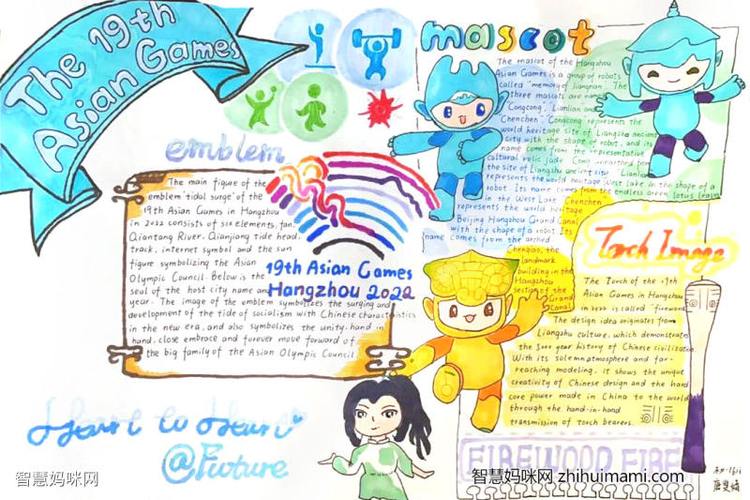 The 19th
Asian Games
mascot
The mascot of the Hangzhou
Asian Games is a group of robots
called "memories Jiangnan". The
three mascots are named
"Congcong", Lianlian and
Chenchen". Congcong represents the
world heritage site of Liangzhu ancient
city with the shape of robot, and its
name comes from the representative
cultural relic Jade Cong unearthed from
the site of Liangzhu ancient city. "Lianlian"
represents the world heritage West Lake in the shape of a
robot. Its name comes from the endless green lotus leaves
in the West Lake. Chenchen
represents the world heritage
Beijing Hangzhou Grand Canal
with the shape of a robot. Its
name comes from the arched
Chenqiao, the
landmark
building in the
Hangzhou
section of the
Grand
Canal.
emblem
The main figure of the
emblem "tidal surge" of the
19th Asian Games in Hangzhou
in 2022 consists of six elements, fan,
Qiantang River, Qianjiang tide head,
track, internet symbol and the sun
figure symbolizing the Asian
Olympic Council. Below is the
seal of the host city name and
year. The image of the emblem symbolizes the surging and
development of the tide of socialism with Chinese characteristics
in the new era, and also symbolizes the unity, hand in
hand, close embrace and forever move forward of
the big family of the Asian Olympic Council
19th Asian Games
Hangzhou 2022
Torch Image
The Torch of the 19th
Asian Games in Hangzhou
in 2022 is called "firewood".
The design idea originates from
Liangzhu culture, which demonstrates
the 5000 year history of Chinese civilization.
With its solemn atmosphere and far-
reaching modeling. It shows the unique
creativity of Chinese design and the hard
core power made in China to the world
through the hand-in-hand
transmission of torch bearers.
FIREWOOD FIRE
Heart to Heart
@Future
智慧妈咪网
智慧妈咪网 zhihuimami.com